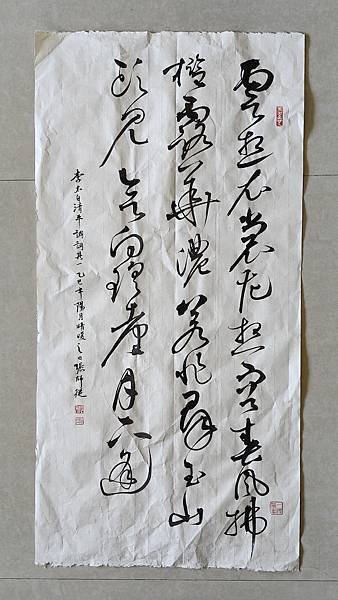 雲想衣裳花想容春風拂
檻露華濃若非群玉山
頭見會向瑤臺月下逢
李太白清平調詞其一乙巳年陽月晴暖之日張師從